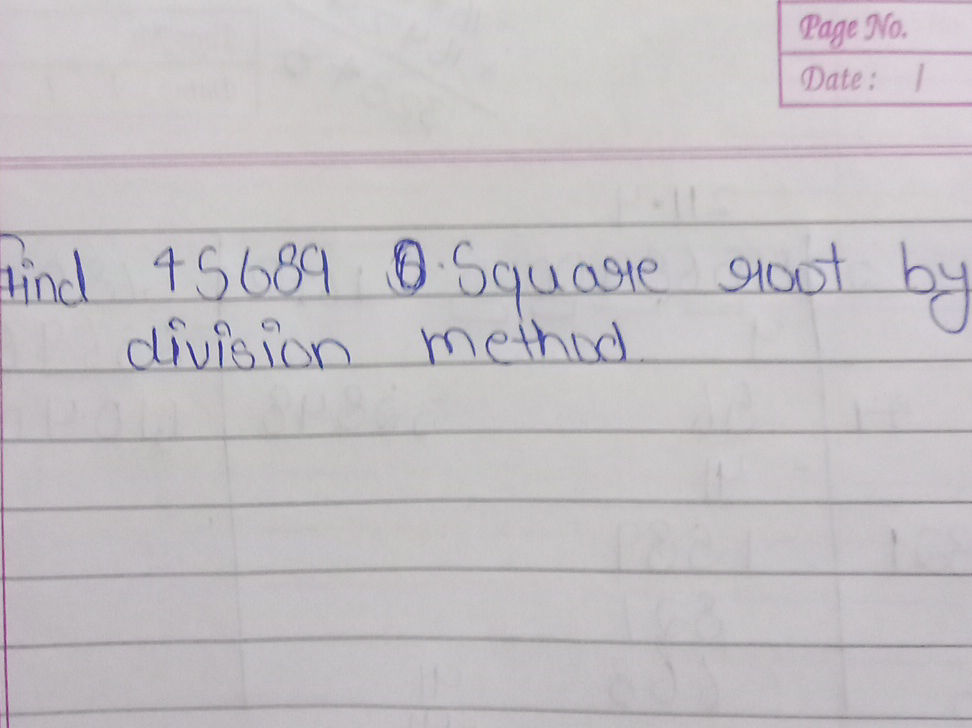 Page No.
Date: /
Find 45689 Square root by
division method.